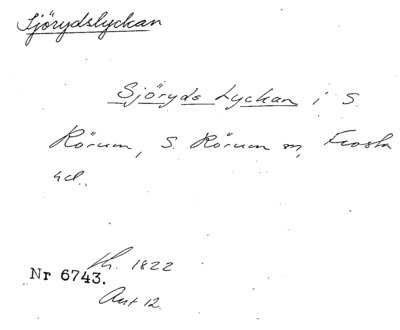 Sjörydslyckan
Sjöryds Lyckan i S.
Rörum, S. Rörum sn, Frosta
hd.
th. 1822
Nr 6743.
Ant 12.